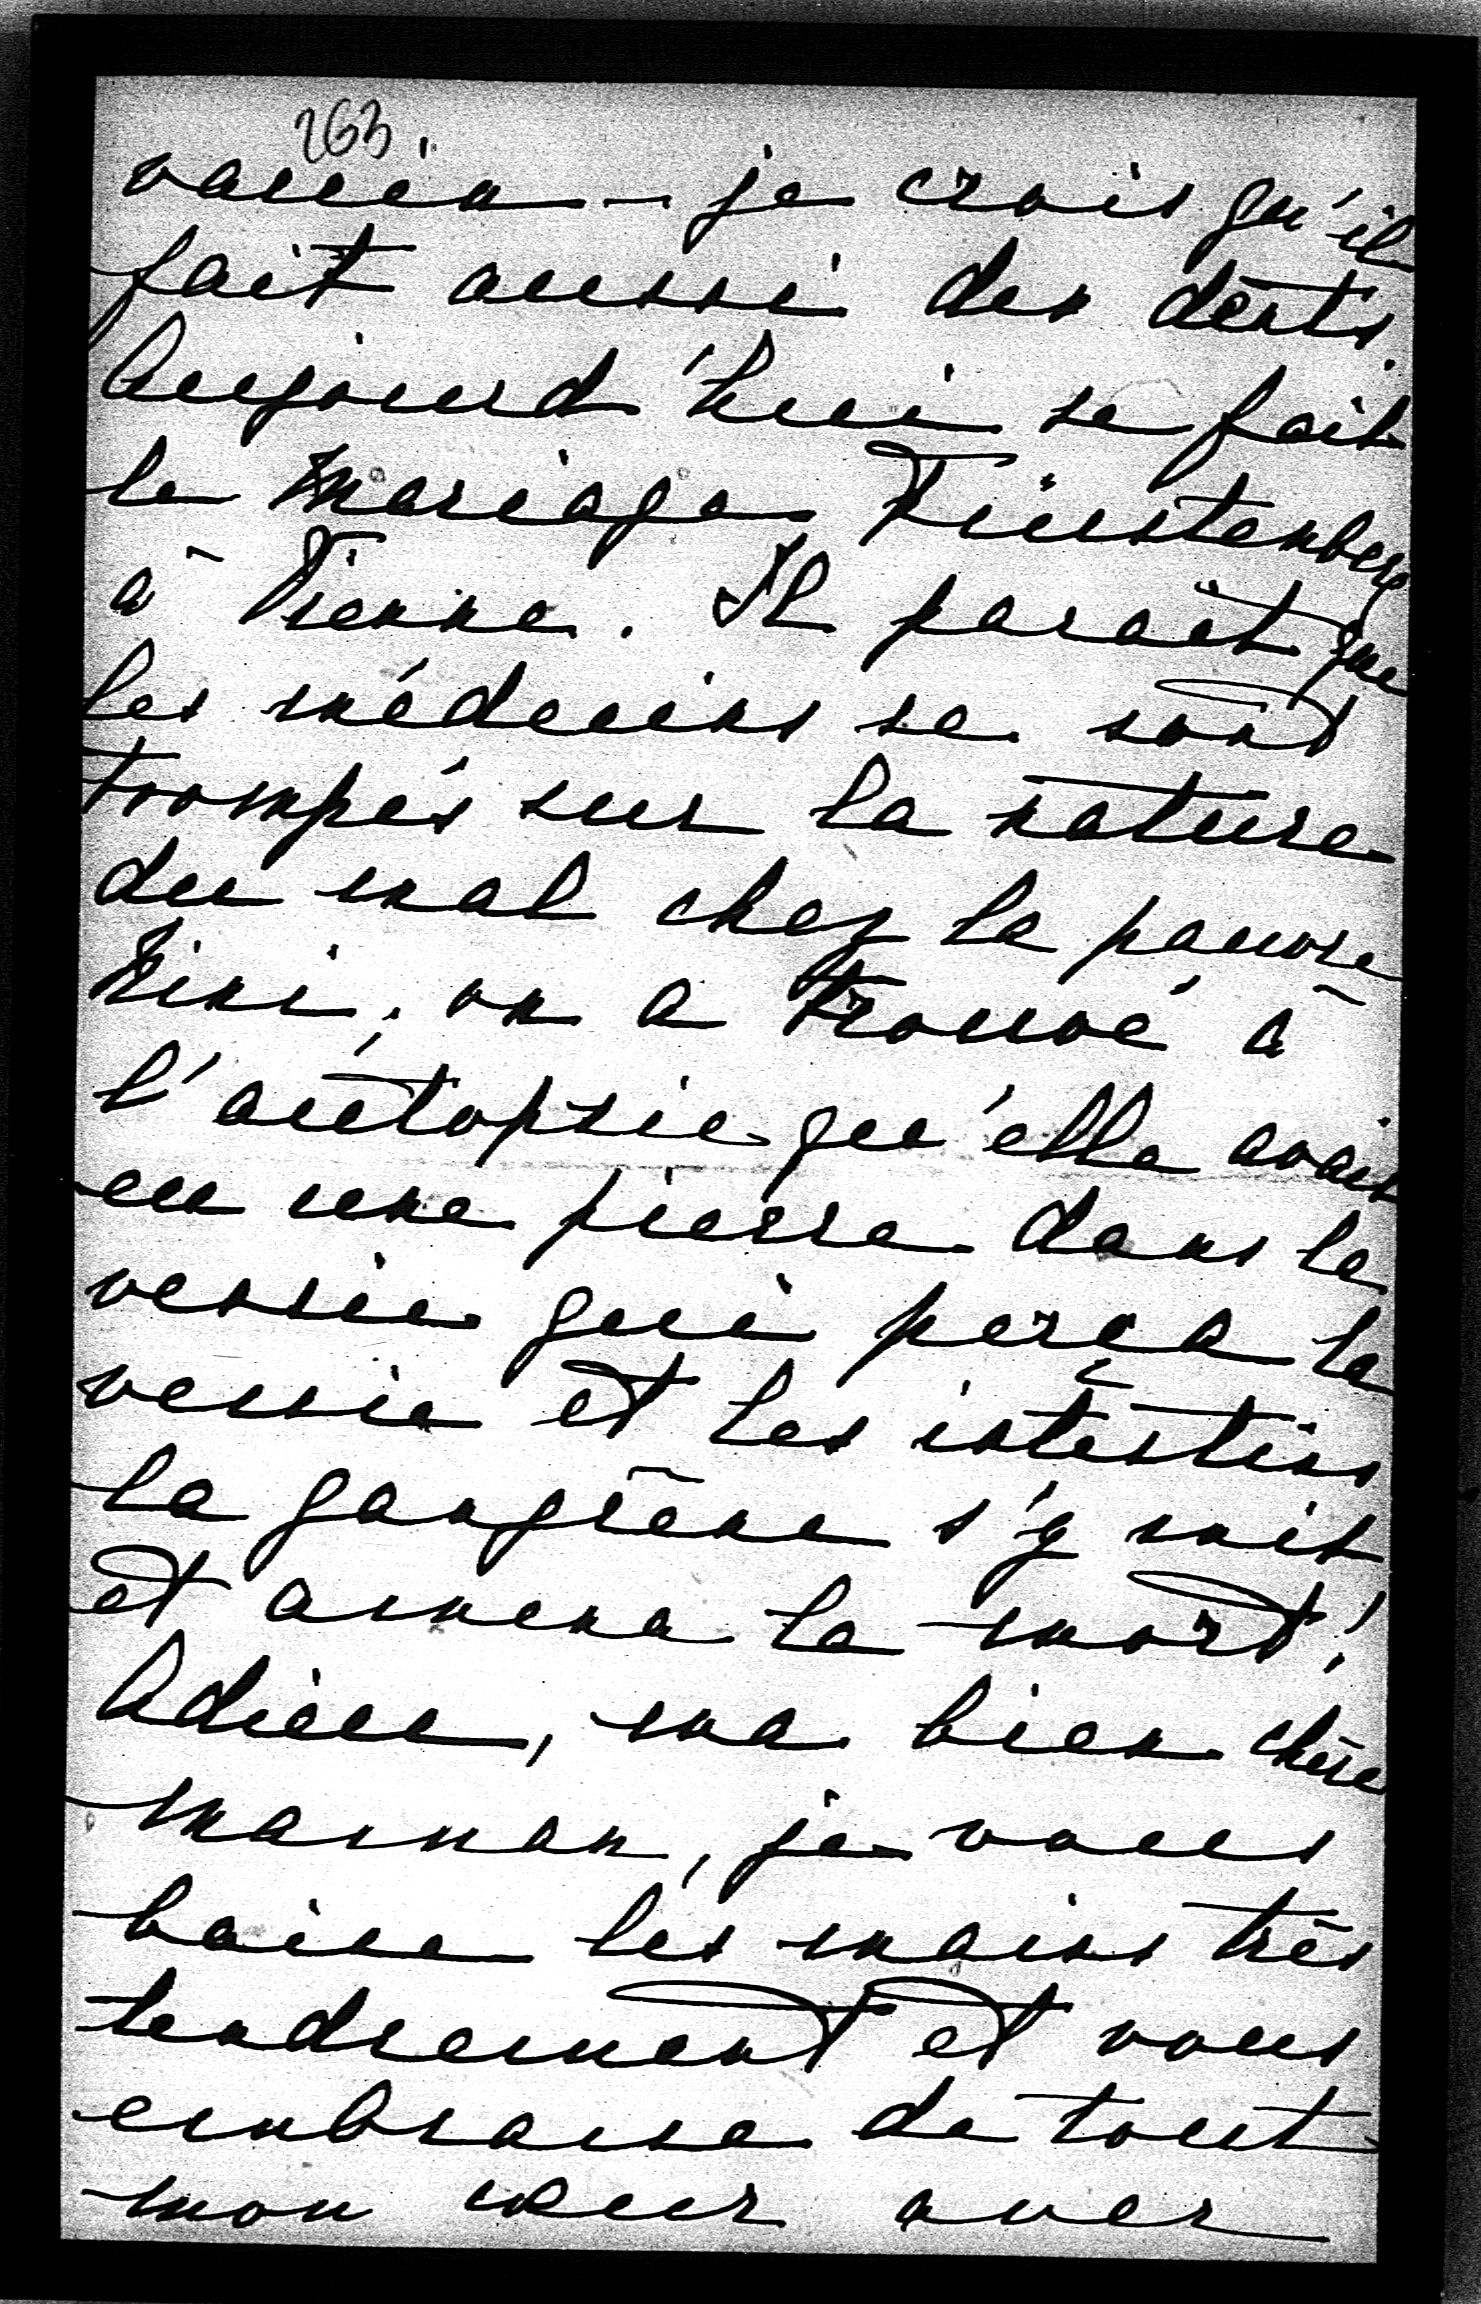 263.
vaccin - je crois qu'il
fait aussi des dents.
Aujourd'hui se fait
le mariage Fürstenberg
à Vienne. Il paraît que
les médecins se sont
trompés sur la nature
du mal chez la pauvre
Nini, on a trouvé à
l'autopsie qu'elle avait
eu une pierre dans la
vessie qui perça la
vessie et les intestins
la gangrène s'y mit
et amena la mort!
Adieu, ma bien chère
maman, je vous
baise les mains très
tendrement et vous
embrasse de tout
mon cœur avec